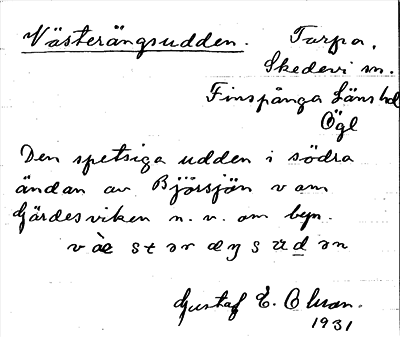 Västerängsudden. Tarpa,
Skedevi sn.
Finspånga Läns hd
Ögl
Den spetsiga udden i södra
ändan av Björsjön v om
Gärdesviken n. v. om byn.
Gustaf E. Olsson.
1931